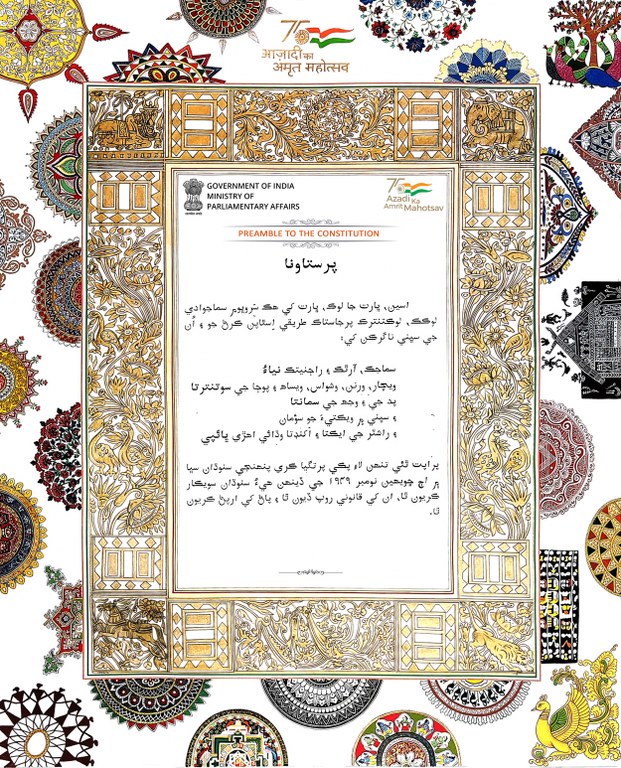 75
आज़ादी का
अमृत महोत्सव
GOVERNMENT OF INDIA
MINISTRY OF
PARLIAMENTARY AFFAIRS
75
Azadi Ka
Amrit Mahotsav
PREAMBLE TO THE CONSTITUTION
پرستاونا
اسين، ڀارت جا لوڪ، ڀارت کي هڪ سَروڀوم سماجوادي
لوڪتنترڪ پرجاستاڪ طريقي اِسٿاپن ڪرڻ جو ۽ اُن
جي سڀني ناگرڪن کي:
سماجڪ، آرٿڪ ۽ راجنيتڪ نياءُ
ويچار، ورنن، وشواس، ويساھ ۽ پوڄا جي سوتنترتا
پد جي ۽ وجھ جي سمانتا
۽ سڀني ۾ ويڪتيءَ جو سؤمان
۽ راشٽر جي ايڪتا ۽ اکنڊتا وڌائي اهڙي ڀائپي
پراپت ٿئي تنهن لاءِ پڪي پرتگيا ڪري پنهنجي سنوڌان سڀا
۾ اڄ ڇويهين نومبر ۱۹۴۹ جي ڏينهن هيءُ سنوڌان سويڪار
ڪريون ٿا، ان کي قانوني روپ ڏيون ٿا ۽ پاڻ کي ارپڻ ڪريون
ٿا.